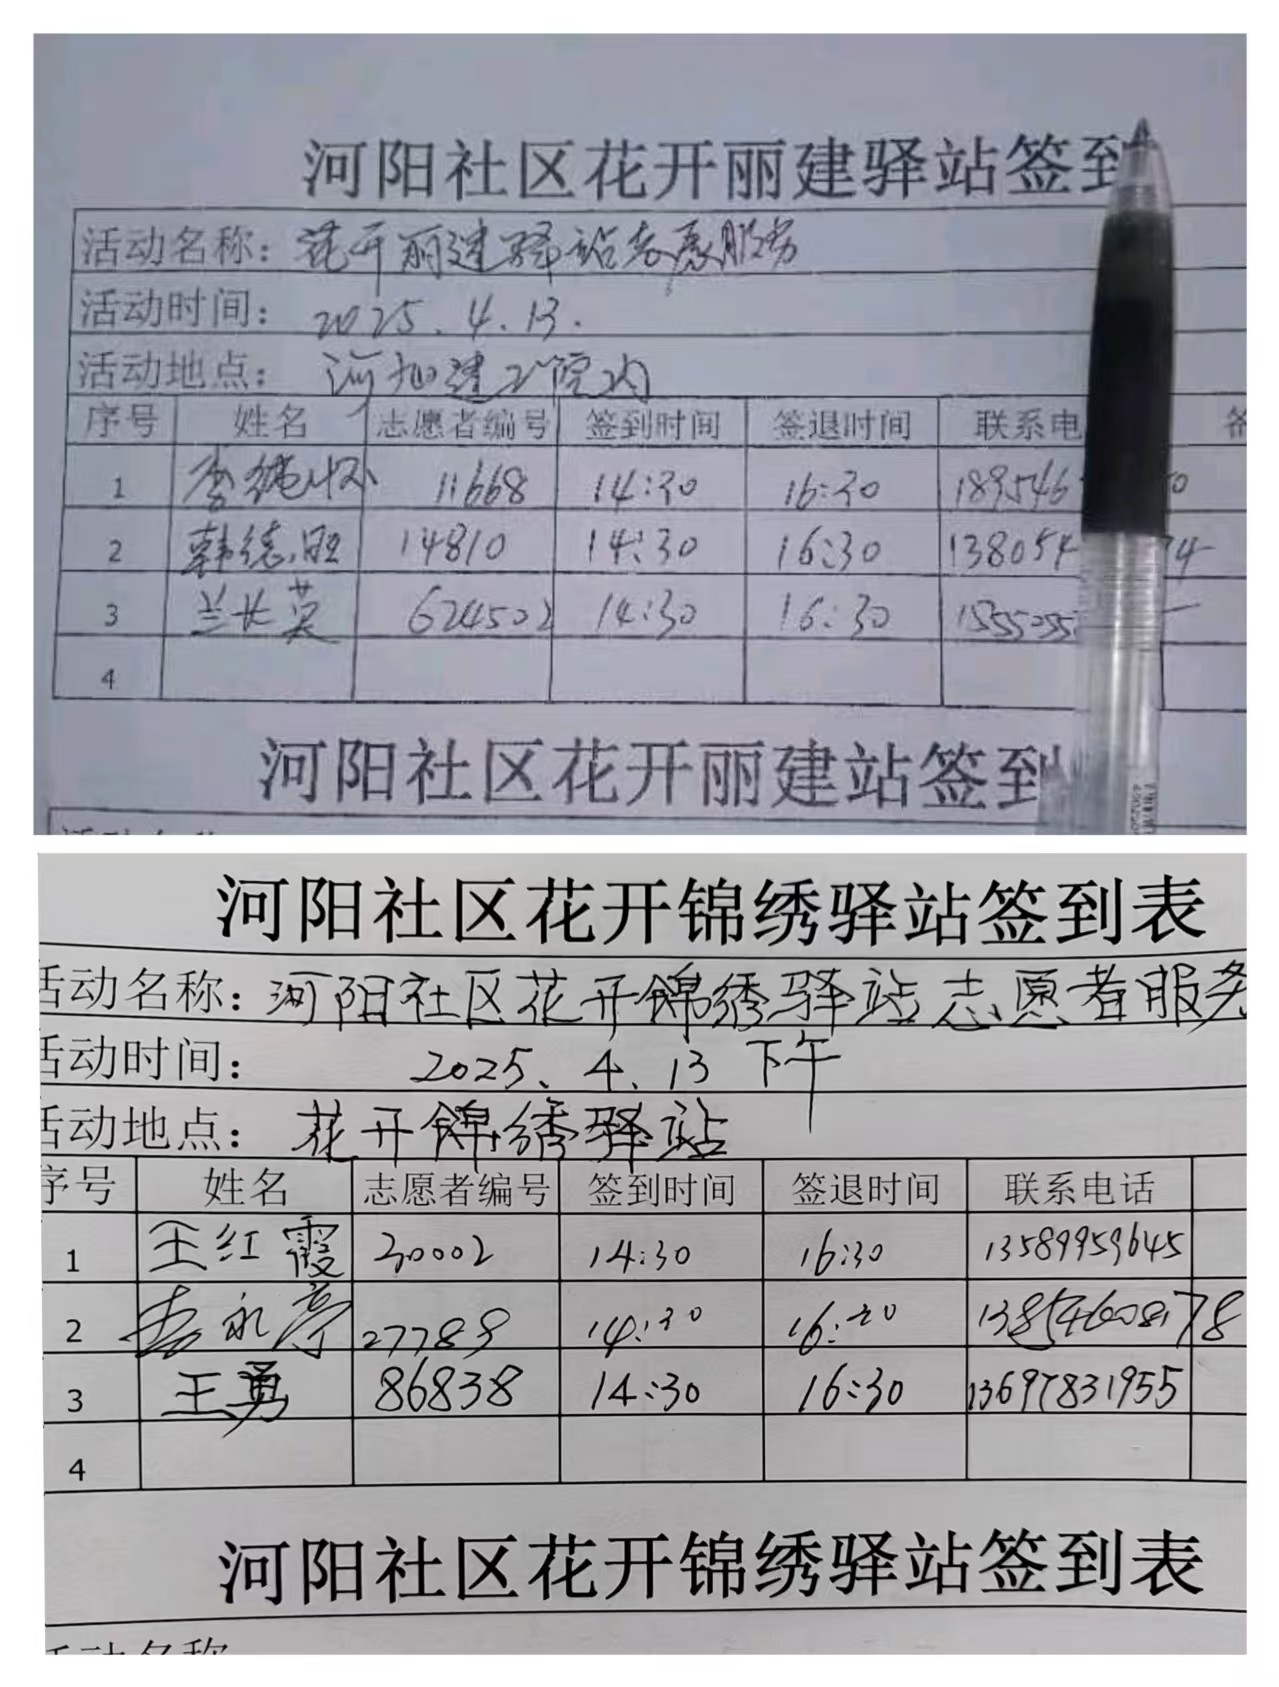 河阳社区花开丽建驿站签到
活动名称：花开丽建驿站志愿服务
活动时间：2025.4.13.
活动地点：河阳建工院内
序号 姓名 志愿者编号 签到时间 签退时间 联系电
1 李纯怀 11668 14:30 16:30 189546 0
2 韩德旺 14810 14:30 16:30 138054 74
3 兰长英 624502 14:30 16:30
4
河阳社区花开丽建站签到
河阳社区花开锦绣驿站签到表
活动名称：河阳社区花开锦绣驿站志愿者服务
活动时间： 2025.4.13 下午
活动地点：花开锦绣驿站
序号 姓名 志愿者编号 签到时间 签退时间 联系电话
1 王红霞 30002 14:30 16:30 13589959645
2 永亭 27789 14:30 16:30 13854600878
3 王勇 86838 14:30 16:30 13697831955
4
河阳社区花开锦绣驿站签到表
活动名称